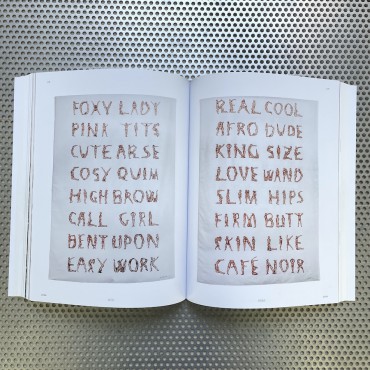 FOXY LADY
PINK TITS
CUTE ARSE
COSY QUIM
HIGH BROW
CALL GIRL
BENT UPON
EASY WORK
REAL COOL
AFRO DUDE
KING SIZE
LOVE WAND
SLIM HIPS
FIRM BUTT
SKIN LIKE
CAFÉ NOIR